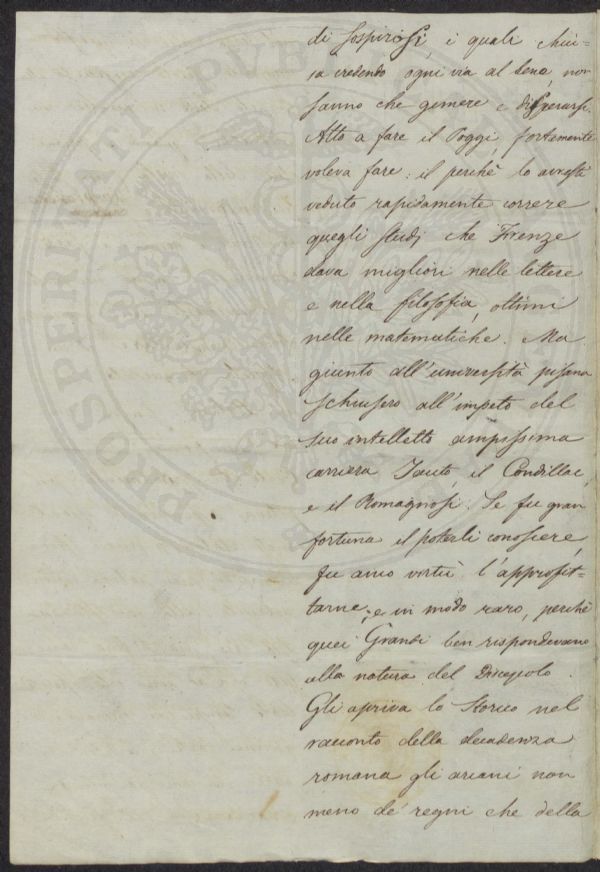 di sospirosi, i quali chiu-
sa credendo ogni via al bene, non
sanno che gemere e disperarsi.
Atto a fare il Poggi, fortemente
voleva fare: il perchè lo avresti
veduto rapidamente correre
quegli studj che Firenze
dava migliori nelle lettere
e nella filosofia, ottimi
nelle matematiche. Ma
giunto all'università pisana
schiusero all'impeto del
suo intelletto ampissima
carriera Tacito, il Condillac,
e il Romagnosi. Se fu gran
fortuna il poterli conoscere,
fu anco virtù l'approfit-
tarne; e in modo raro, perchè
quei Grandi ben rispondevano
alla natura del Discepolo.
Gli apriva lo Storico nel
racconto della decadenza
romana gli arcani non
meno de' regni che della
PROSPERITATI PVBL